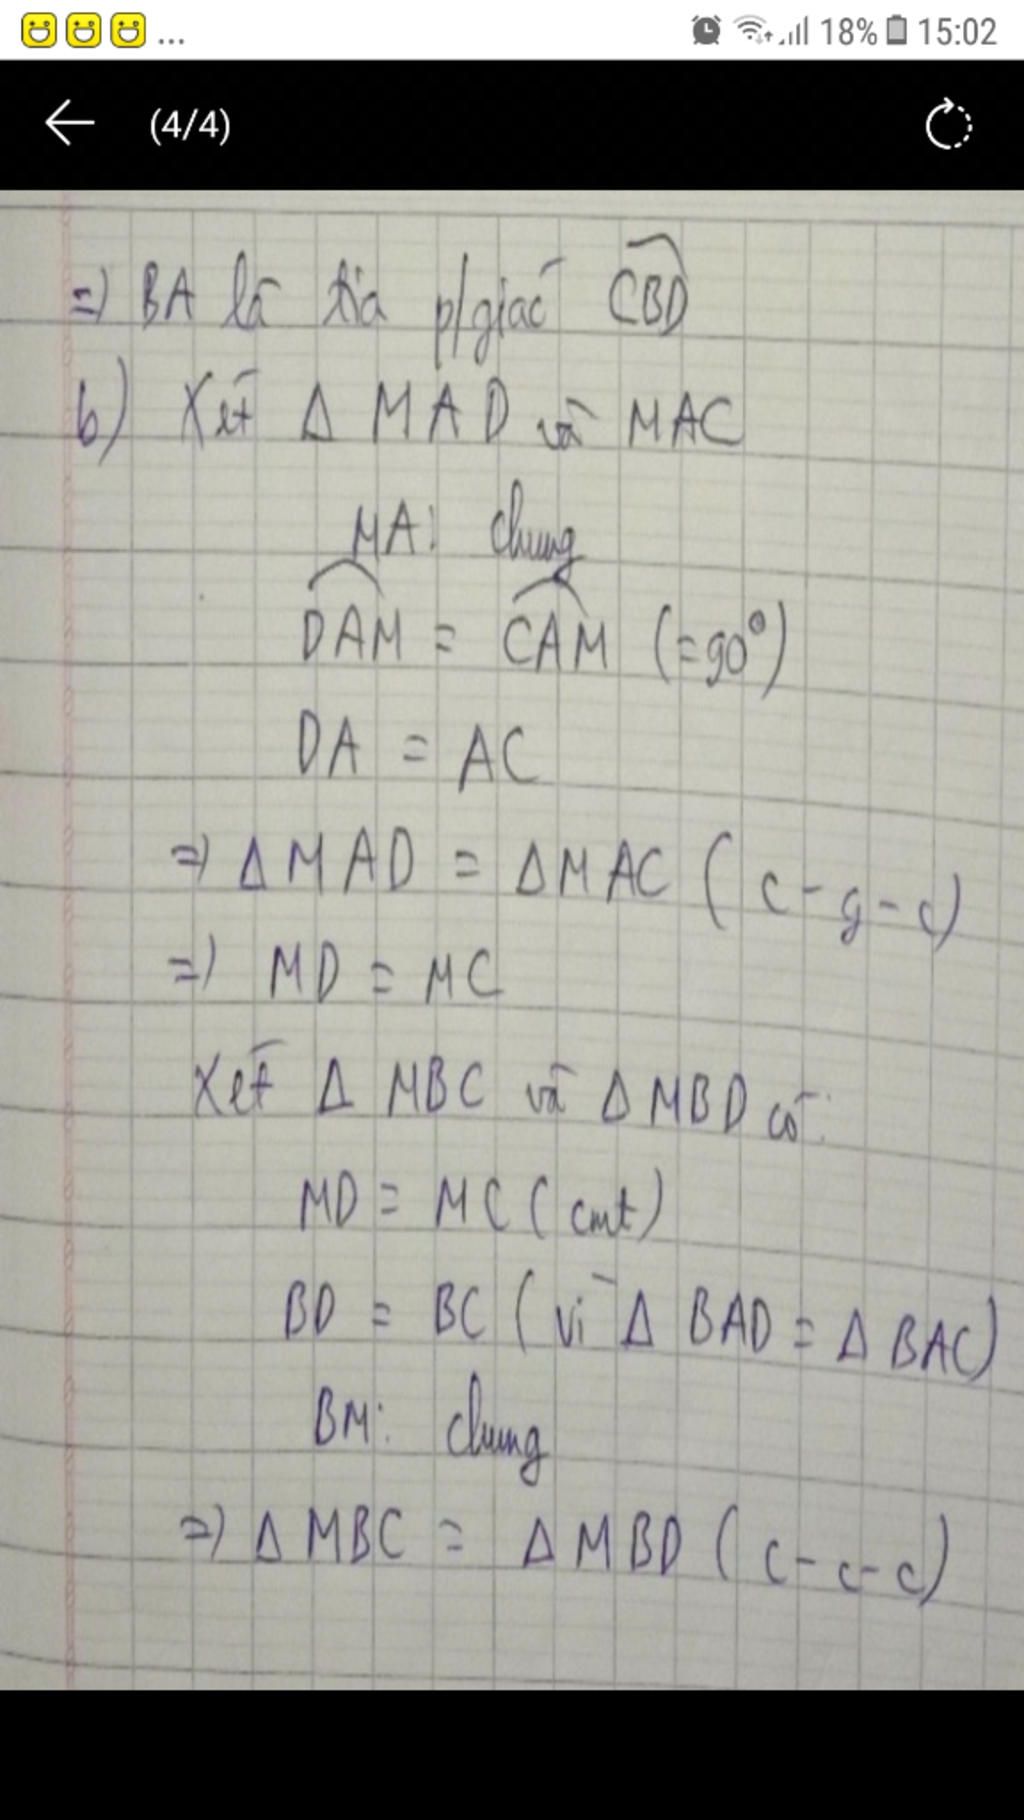 ... 18% 15:02
(4/4)
=) BA là tia p/giác CBD
b) Xét Δ MAD và MAC
MA: chung
DAM = CAM (=90°)
DA = AC
=) ΔMAD = ΔMAC (c-g-c)
=) MD = MC
Xét Δ MBC và ΔMBD có:
MD = MC (cmt)
BD = BC (vì Δ BAD = Δ BAC)
BM: chung
=) Δ MBC = ΔMBD (c-c-c)